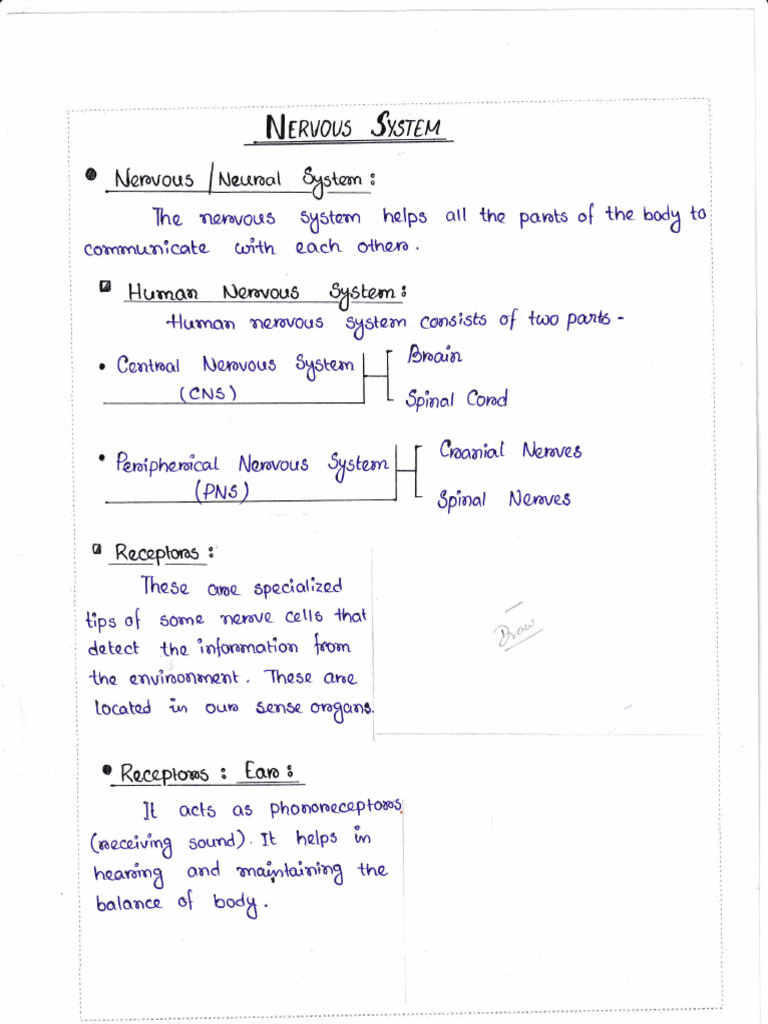 NERVOUS SYSTEM
Nervous / Neural System:
The nervous system helps all the parts of the body to
communicate with each other.
Human Nervous System:
Human nervous system consists of two parts -
Central Nervous System
(CNS)
Brain
Spinal Cord
Peripherical Nervous System
(PNS)
Cranial Nerves
Spinal Nerves
Receptors:
These are specialized
tips of some nerve cells that
detect the information from
the environment. These are
located in our sense organs.
Draw
Receptors: Ear:
It acts as phonoreceptors
(receiving sound). It helps in
hearing and maintaining the
balance of body.